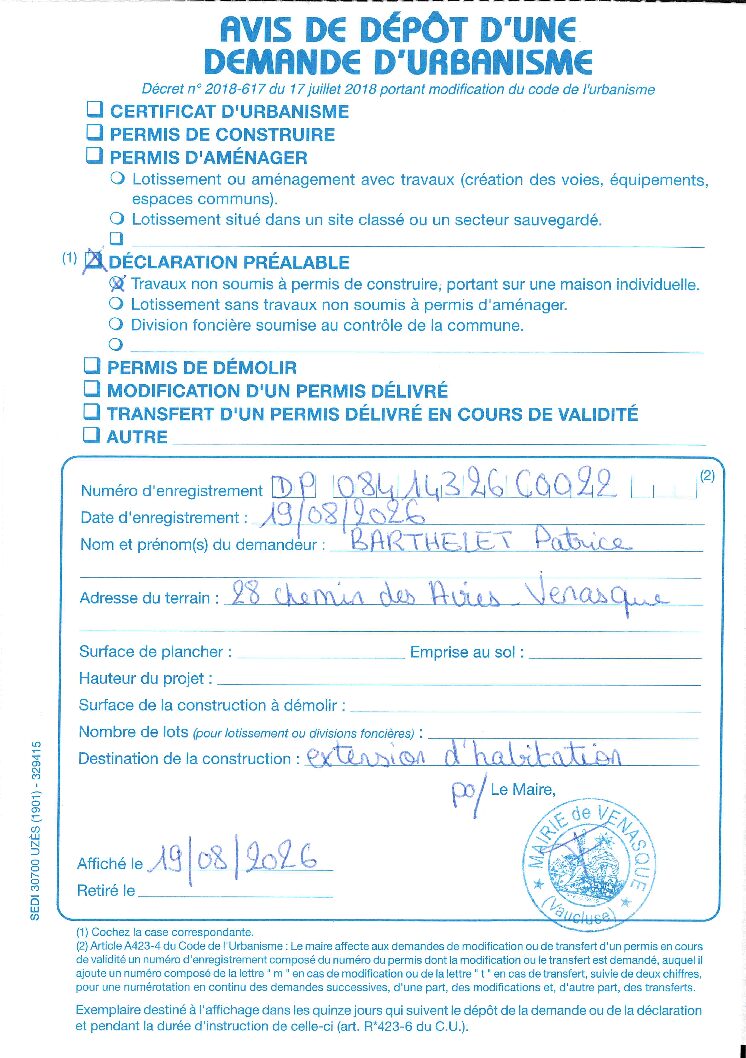 AVIS DE DÉPÔT D'UNE
DEMANDE D'URBANISME
Décret n° 2018-617 du 17 juillet 2018 portant modification du code de l'urbanisme
CERTIFICAT D'URBANISME
PERMIS DE CONSTRUIRE
PERMIS D'AMÉNAGER
Lotissement ou aménagement avec travaux (création des voies, équipements,
espaces communs).
Lotissement situé dans un site classé ou un secteur sauvegardé.
(1) DÉCLARATION PRÉALABLE
Travaux non soumis à permis de construire, portant sur une maison individuelle.
Lotissement sans travaux non soumis à permis d'aménager.
Division foncière soumise au contrôle de la commune.
PERMIS DE DÉMOLIR
MODIFICATION D'UN PERMIS DÉLIVRÉ
TRANSFERT D'UN PERMIS DÉLIVRÉ EN COURS DE VALIDITÉ
AUTRE
Numéro d'enregistrement DP 084 143 26 C0022 (2)
Date d'enregistrement : 19/08/2026
Nom et prénom(s) du demandeur : BARTHELET Patrice
Adresse du terrain : 28 chemin des Venasque
Surface de plancher : Emprise au sol :
Hauteur du projet :
Surface de la construction à démolir :
Nombre de lots (pour lotissement ou divisions foncières) :
Destination de la construction : extension d'habitation
po/ Le Maire,
MAIRIE de VENASQUE
(Vaucluse)
Affiché le 19/08/2026
Retiré le
SEDI 30700 UZÈS (1901) - 329415
(1) Cochez la case correspondante.
(2) Article A423-4 du Code de l'Urbanisme : Le maire affecte aux demandes de modification ou de transfert d'un permis en cours
de validité un numéro d'enregistrement composé du numéro du permis dont la modification ou le transfert est demandé, auquel il
ajoute un numéro composé de la lettre " m " en cas de modification ou de la lettre " t " en cas de transfert, suivie de deux chiffres,
pour une numérotation en continu des demandes successives, d'une part, des modifications et, d'autre part, des transferts.
Exemplaire destiné à l'affichage dans les quinze jours qui suivent le dépôt de la demande ou de la déclaration
et pendant la durée d'instruction de celle-ci (art. R*423-6 du C.U.).